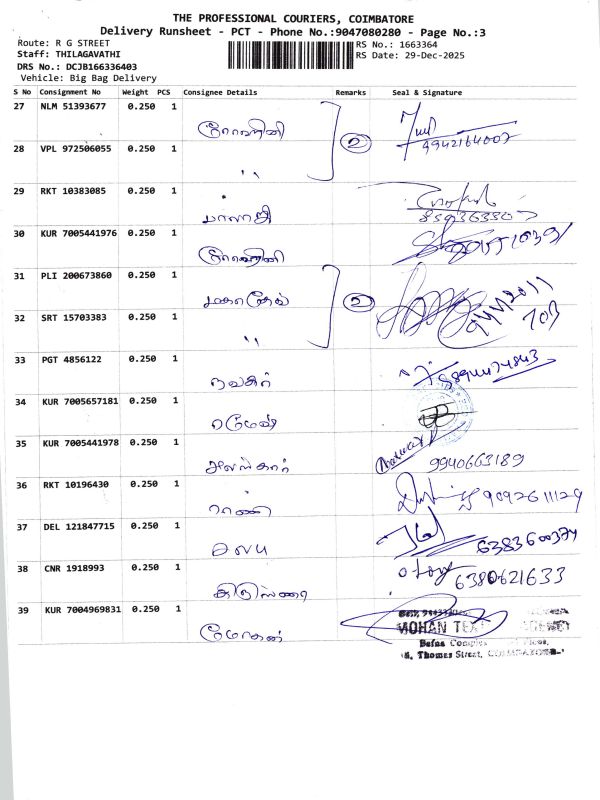 THE PROFESSIONAL COURIERS, COIMBATORE
Delivery Runsheet - PCT - Phone No.:9047080280 - Page No.:3
Route: R G STREET
RS No.: 1663364
Staff: THILAGAVATHI
RS Date: 29-Dec-2025
DRS No.: DCJB166336403
Vehicle: Big Bag Delivery
S No Consignment No Weight PCS Consignee Details Remarks Seal & Signature
27 NLM 51393677 0.250 1 ரோஹினி 2
9942164007
28 VPL 972506055 0.250 1 ,,
29 RKT 10383085 0.250 1 பாலாஜி
30 KUR 7005441976 0.250 1 ரோஹினி
31 PLI 200673860 0.250 1 மகாதேவ் 2
32 SRT 15703383 0.250 1 ,,
33 PGT 4856122 0.250 1
34 KUR 7005657181 0.250 1 ரமேஷ்
35 KUR 7005441978 0.250 1 அலங்கார் 9940663189
36 RKT 10196430 0.250 1 ராணி 9092611129
37 DEL 121847715 0.250 1
38 CNR 1918993 0.250 1 6380621633
39 KUR 7004969831 0.250 1 மோகன்
MOHAN
Bafna Complex
Thomas Street, COIMBATORE